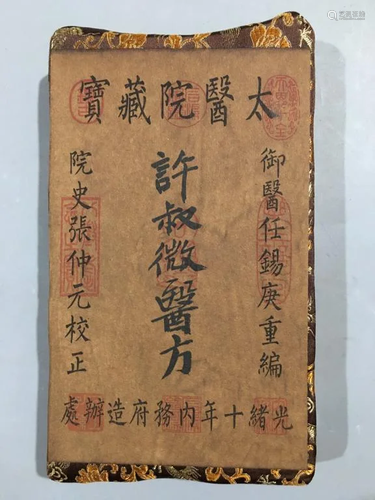 太醫院藏寶
御醫任錫庚重編
許叔微醫方
院史張仲元校正
光緒十年内務府造辦處